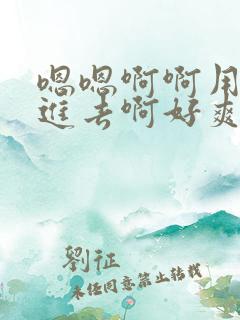 嗯嗯啊啊用
进去啊好爽
劉征
未经同意禁止转载